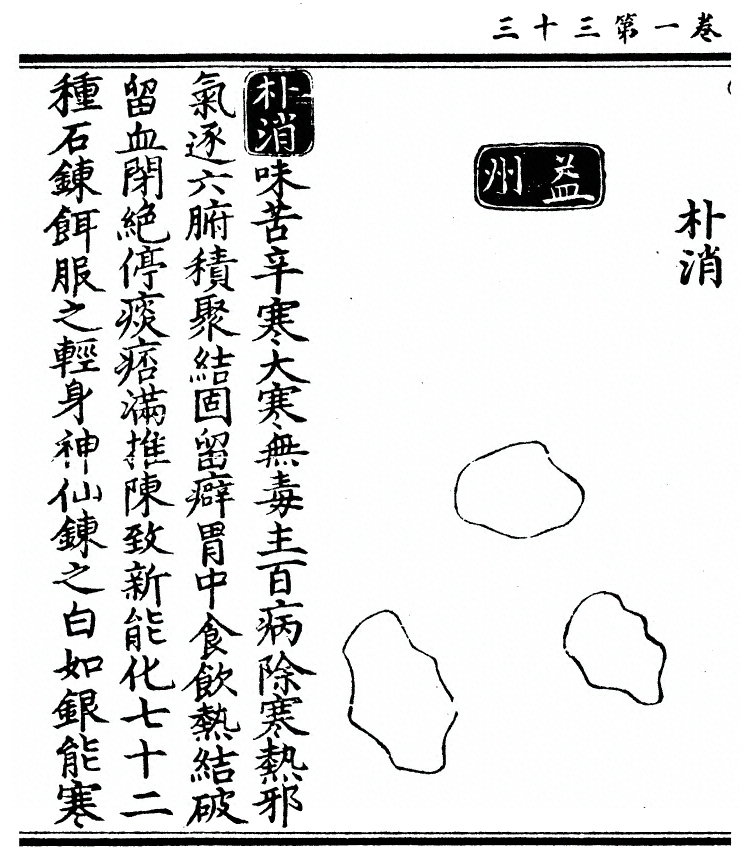 卷一第三十三
朴消
益州
朴消味苦辛寒大寒無毒主百病除寒熱邪
氣逐六腑積聚結固留癖胃中食飲熱結破
留血閉絕停痰痞滿推陳致新能化七十二
種石鍊餌服之輕身神仙鍊之白如銀能寒